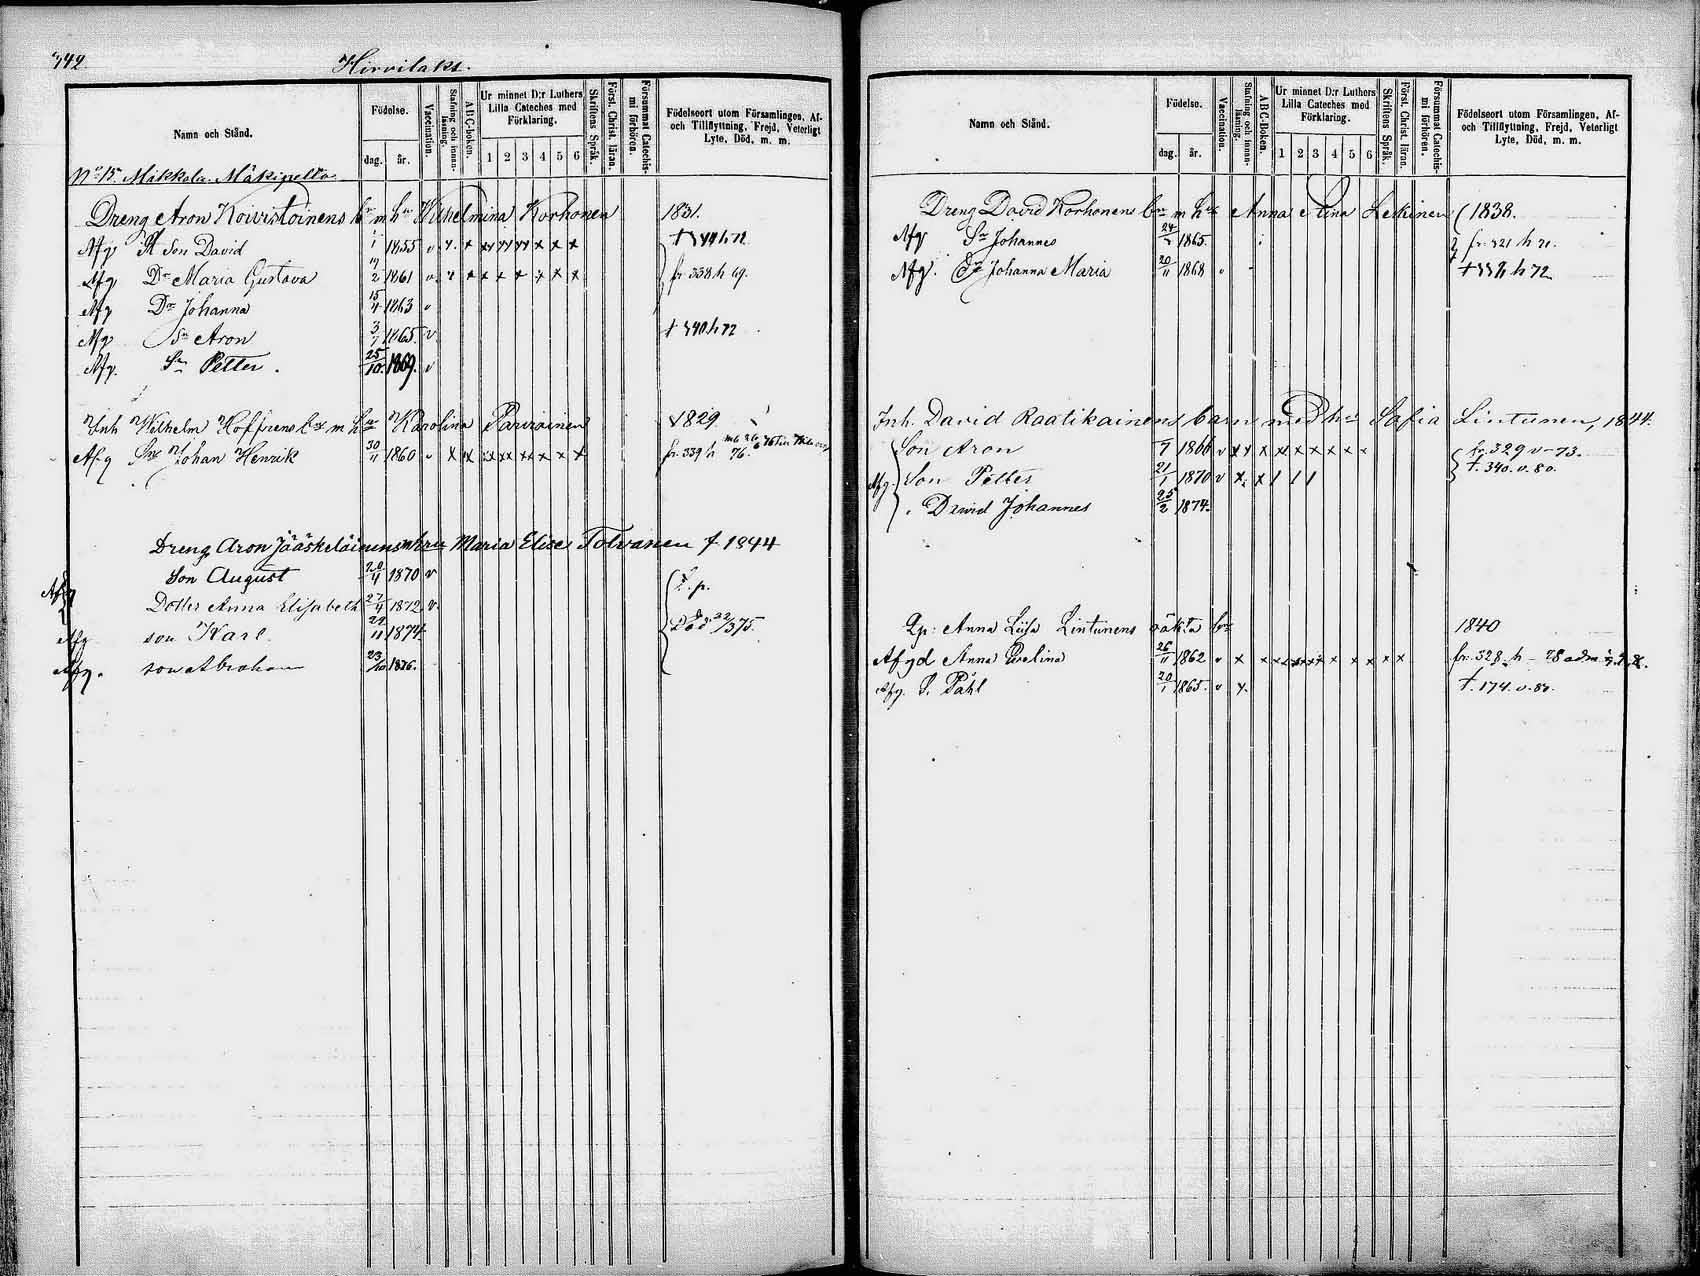 342
Hirvilaks.
Namn och Stånd.
Födelse.
dag.
år.
Vaccination.
Stafning och innan-läsning.
ABC-boken.
Ur minnet D:r Luthers Lilla Cateches med Förklaring.
1 2 3 4 5 6
Skriftens Språk.
Först. Christ. läran.
Försummat Catechis-mi förhören.
Födelseort utom Församlingen, Af- och Tillflyttning, Frejd, Veterligt Lyte, Död, m. m.
No 15. Makkola. Mäkipelto
Dreng Aron Koivistoinens bn m hu Wilhelmina Korhonen 1831.
Afg Son David 1855 v
Afg Dr Maria Gustava 1861 v fr. 338 h 69.
Afg Dr Johanna 15/4 1863 v
Afg Sn Aron 1865 v + 340 h 72
Afg. Sn Petter. 25/10 1869. v
Inh Wilhelm Hoffrens bn m hu Karolina Parviainen 1829
Afg Sn Johan Henrik 30/11 1860 v fr. 339 h 76.
Dreng Aron Jääskeläinens m hru Maria Elise Tolvanen f 1844
Son August 1870 v
Afg Dotter Anna Elisabeth 27/4 1872 v.
Afg son Karl 1874 Död 22/3 75.
Afg. son Abraham 23/10 1876.
Namn och Stånd.
Födelse.
dag.
år.
Vaccination.
Stafning och innan-läsning.
ABC-boken.
Ur minnet D:r Luthers Lilla Cateches med Förklaring.
1 2 3 4 5 6
Skriftens Språk.
Först. Christ. läran.
Försummat Catechis-mi förhören.
Födelseort utom Församlingen, Af- och Tillflyttning, Frejd, Veterligt Lyte, Död, m. m.
Dreng David Korhonens bn m hu Anna Stina Leskinen 1838.
Afg Sn Johannes 1865. fr. 321 h 71.
Afg. Dr Johanna Maria 20/11 1868 v
Inh. David Raatikainens barn med hu Sofia Lintunen, 1844.
Son Aron 1866 v fr. 329 v - 73.
Afg. Son Petter 21/1 1870 v t. 340. v. 80.
David Johannes 25/2 1874.
Qp: Anna Liisa Lintunens oäkta bn 1840
Afg d Anna Evelina 26/11 1862 v fr. 328. h - 78
Afg. S. Påhl 20/1 1865. v t. 174. v. 80.